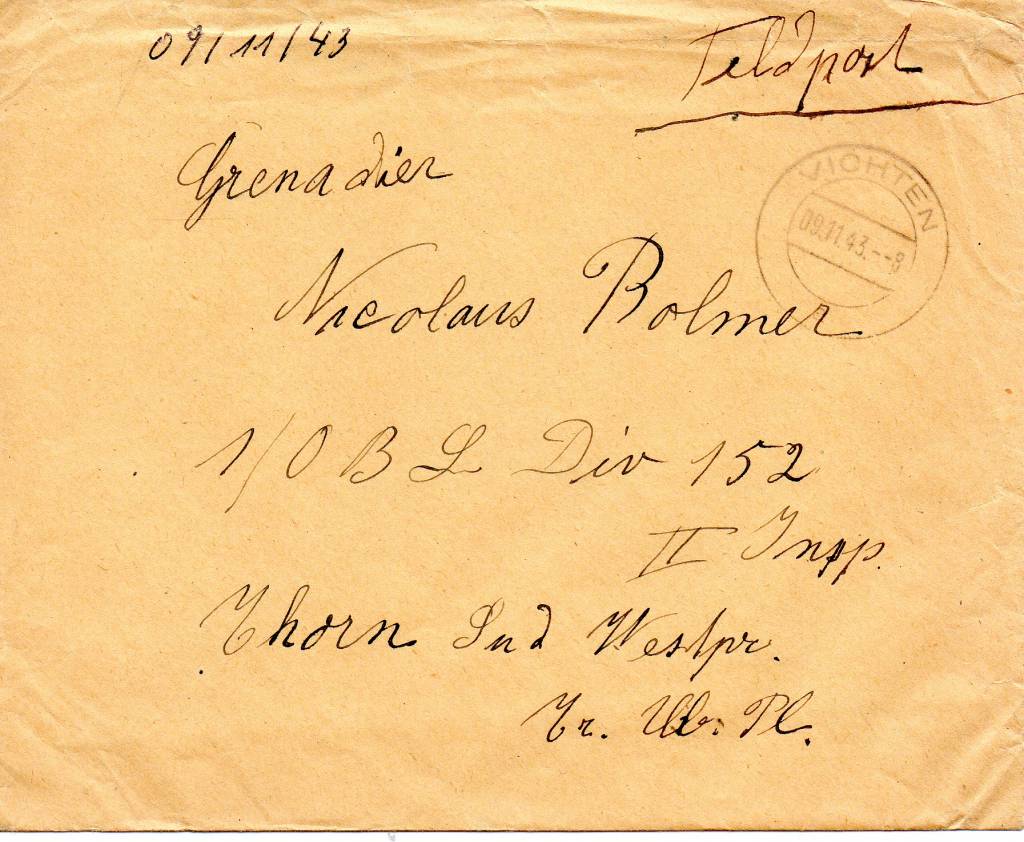 09/11/43
Feldpost
VICHTEN
09.11.43.--8
Grenadier
Nicolaus Bolmer
1/O B L Div 152
II Insp.
Thorn Sud Westpr.
Tr. Ub. Pl.